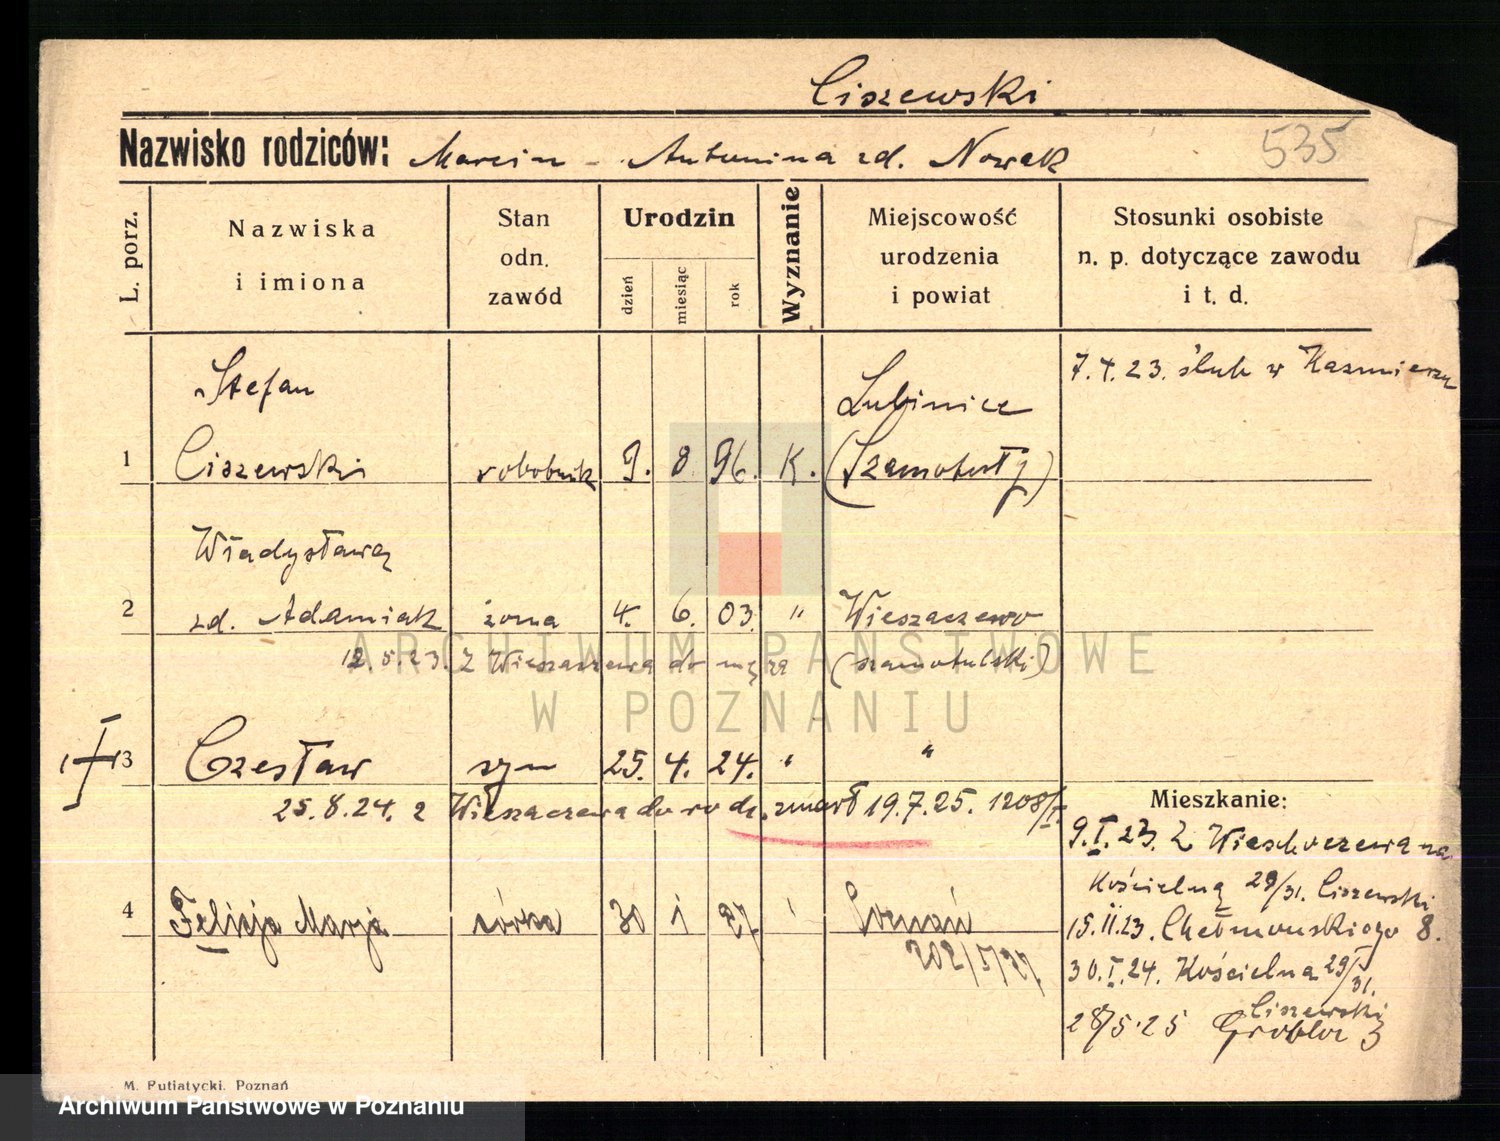 Ciszewski
Nazwisko rodziców: Marcin - Antonina zd. Nowak
535
L. porz.
Nazwiska
i imiona
Stan
odn.
zawód
Urodzin
dzień
miesiąc
rok
Wyznanie
Miejscowość
urodzenia
i powiat
Stosunki osobiste
n. p. dotyczące zawodu
i t. d.
Stefan
Lubinice
7.4.23. ślub w Kazmierzu
1 Ciszewski robotnik 9. 8. 96. K. (Szamotuły)
Władysława
2 zd. Adamiak żona 4. 6. 03. " Wieszczewo
12.5.23. Z do męża (szamotulski)
3 Czesław syn 25. 4. 24. " "
25.8.24. z do rodz. zmarł 19.7.25. 1208/I.
Mieszkanie:
9.I.23. Z na
Kościelną 29/31. Ciszewski
4 Felicja Marja córka 30 1 27 " Poznań
202/5/27
15.II.23. Chełmońskiego 8.
30.I.24. Kościelna 29/31.
Ciszewski
28/5.25 Grobla 3
M. Putiatycki. Poznań
ARCHIWUM PAŃSTWOWE
W POZNANIU
Archiwum Państwowe w Poznaniu